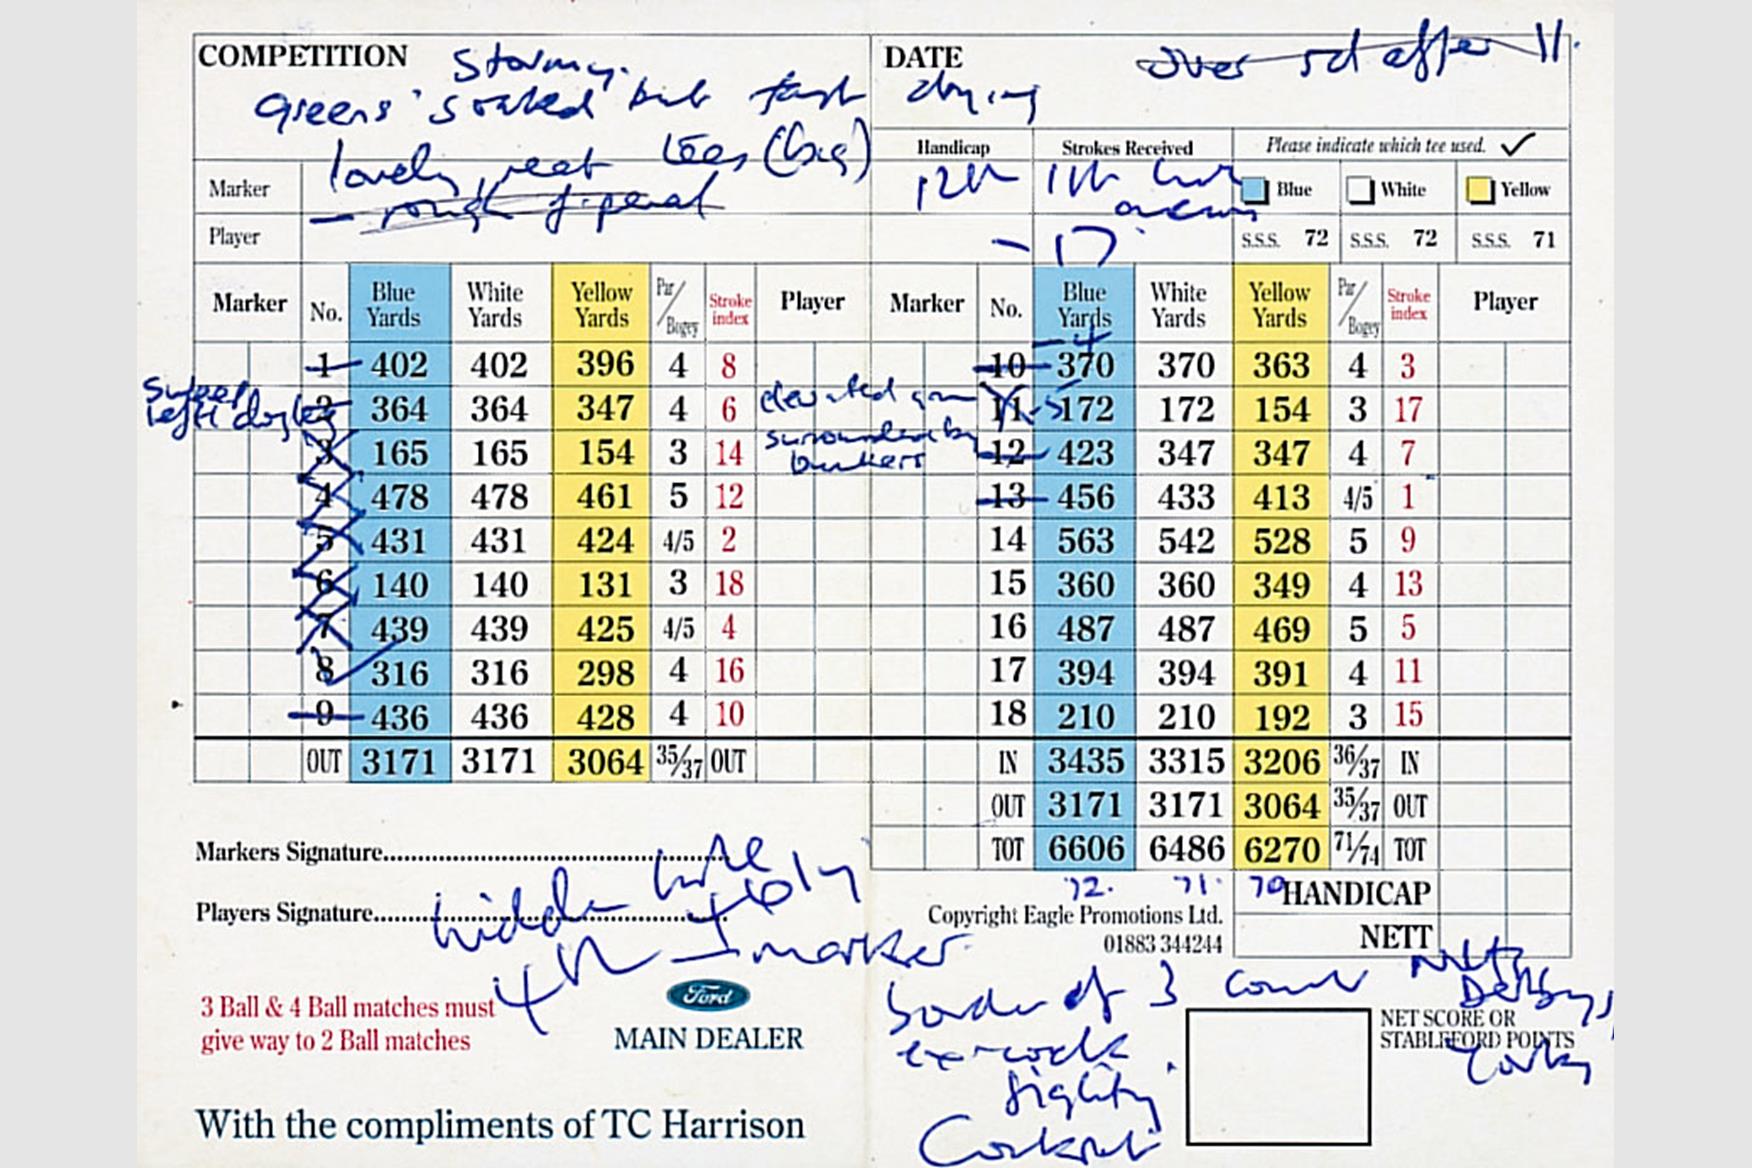 COMPETITION Stormy. DATE over rd after 11.
Greens 'soaked' but fast drying
lovely neat tees (big)
Handicap Strokes Received Please indicate which tee used. ✓
Marker 12th 11th Blue White Yellow
- rough
Player - 17 S.S.S. 72 S.S.S. 72 S.S.S. 71
Marker No. Blue Yards White Yards Yellow Yards Par/Bogey Stroke index Player Marker No. Blue Yards White Yards Yellow Yards Par/Bogey Stroke index Player
- 4
1 402 402 396 4 8 10 370 370 363 4 3
Sweep left dogleg 2 364 364 347 4 6 elevated 11 - 5 172 172 154 3 17
3 165 165 154 3 14 surrounded by bunkers 12 423 347 347 4 7
4 478 478 461 5 12 13 456 433 413 4/5 1
5 431 431 424 4/5 2 14 563 542 528 5 9
6 140 140 131 3 18 15 360 360 349 4 13
7 439 439 425 4/5 4 16 487 487 469 5 5
8 316 316 298 4 16 17 394 394 391 4 11
9 436 436 428 4 10 18 210 210 192 3 15
OUT 3171 3171 3064 35/37 OUT IN 3435 3315 3206 36/37 IN
OUT 3171 3171 3064 35/37 OUT
TOT 6606 6486 6270 71/74 TOT
72. 71. 70
Markers Signature
hidden hole
Players Signature
4th - marker
HANDICAP
NETT
Copyright Eagle Promotions Ltd.
01883 344244
border of 3 Notts
Derbys,
Yorks
3 Ball & 4 Ball matches must
give way to 2 Ball matches
Ford
MAIN DEALER
NET SCORE OR
STABLEFORD POINTS
ex-cock
fighting
Cockpit
With the compliments of TC Harrison